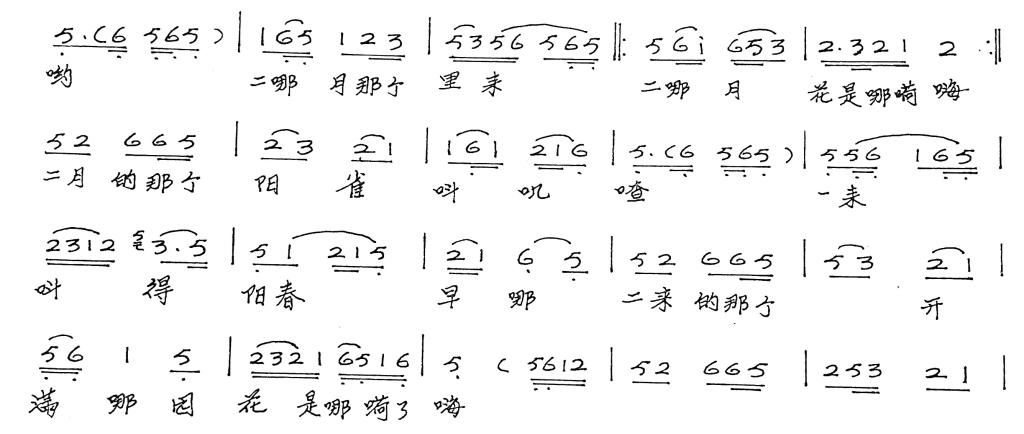 5.(6 565) | 165 123 | 5356 565 ‖: 56i 653 | 2.321 2 :‖
哟 二哪 月那个 里来 二哪 月 花是哪嗬 嗨
52 665 | 23 21 | 161 216 | 5.(6 565) | 556 165 |
二月 的那个 阳 雀 叫 吼 喳 一来
2312 3.5 | 51 215 | 21 6 5 | 52 665 | 53 21 |
叫 得 阳春 早 哪 二来 的那个 开
56 1 5 | 2321 6516 | 5 (5612 | 52 665 | 253 21 |
满 哪 园 花 是哪嗬了 嗨